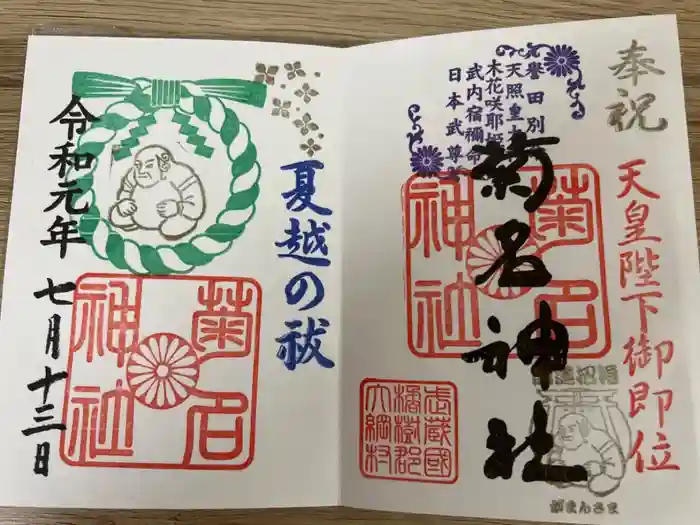 奉祝
天皇陛下御即位
誉田別
天照皇大
木花咲耶姫
武内宿禰命
日本武尊
菊名神社
菊名
神社
武蔵國
橘樹郡
大綱村
がまんさま
夏越の祓
菊名
神社
令和元年
七月十三日